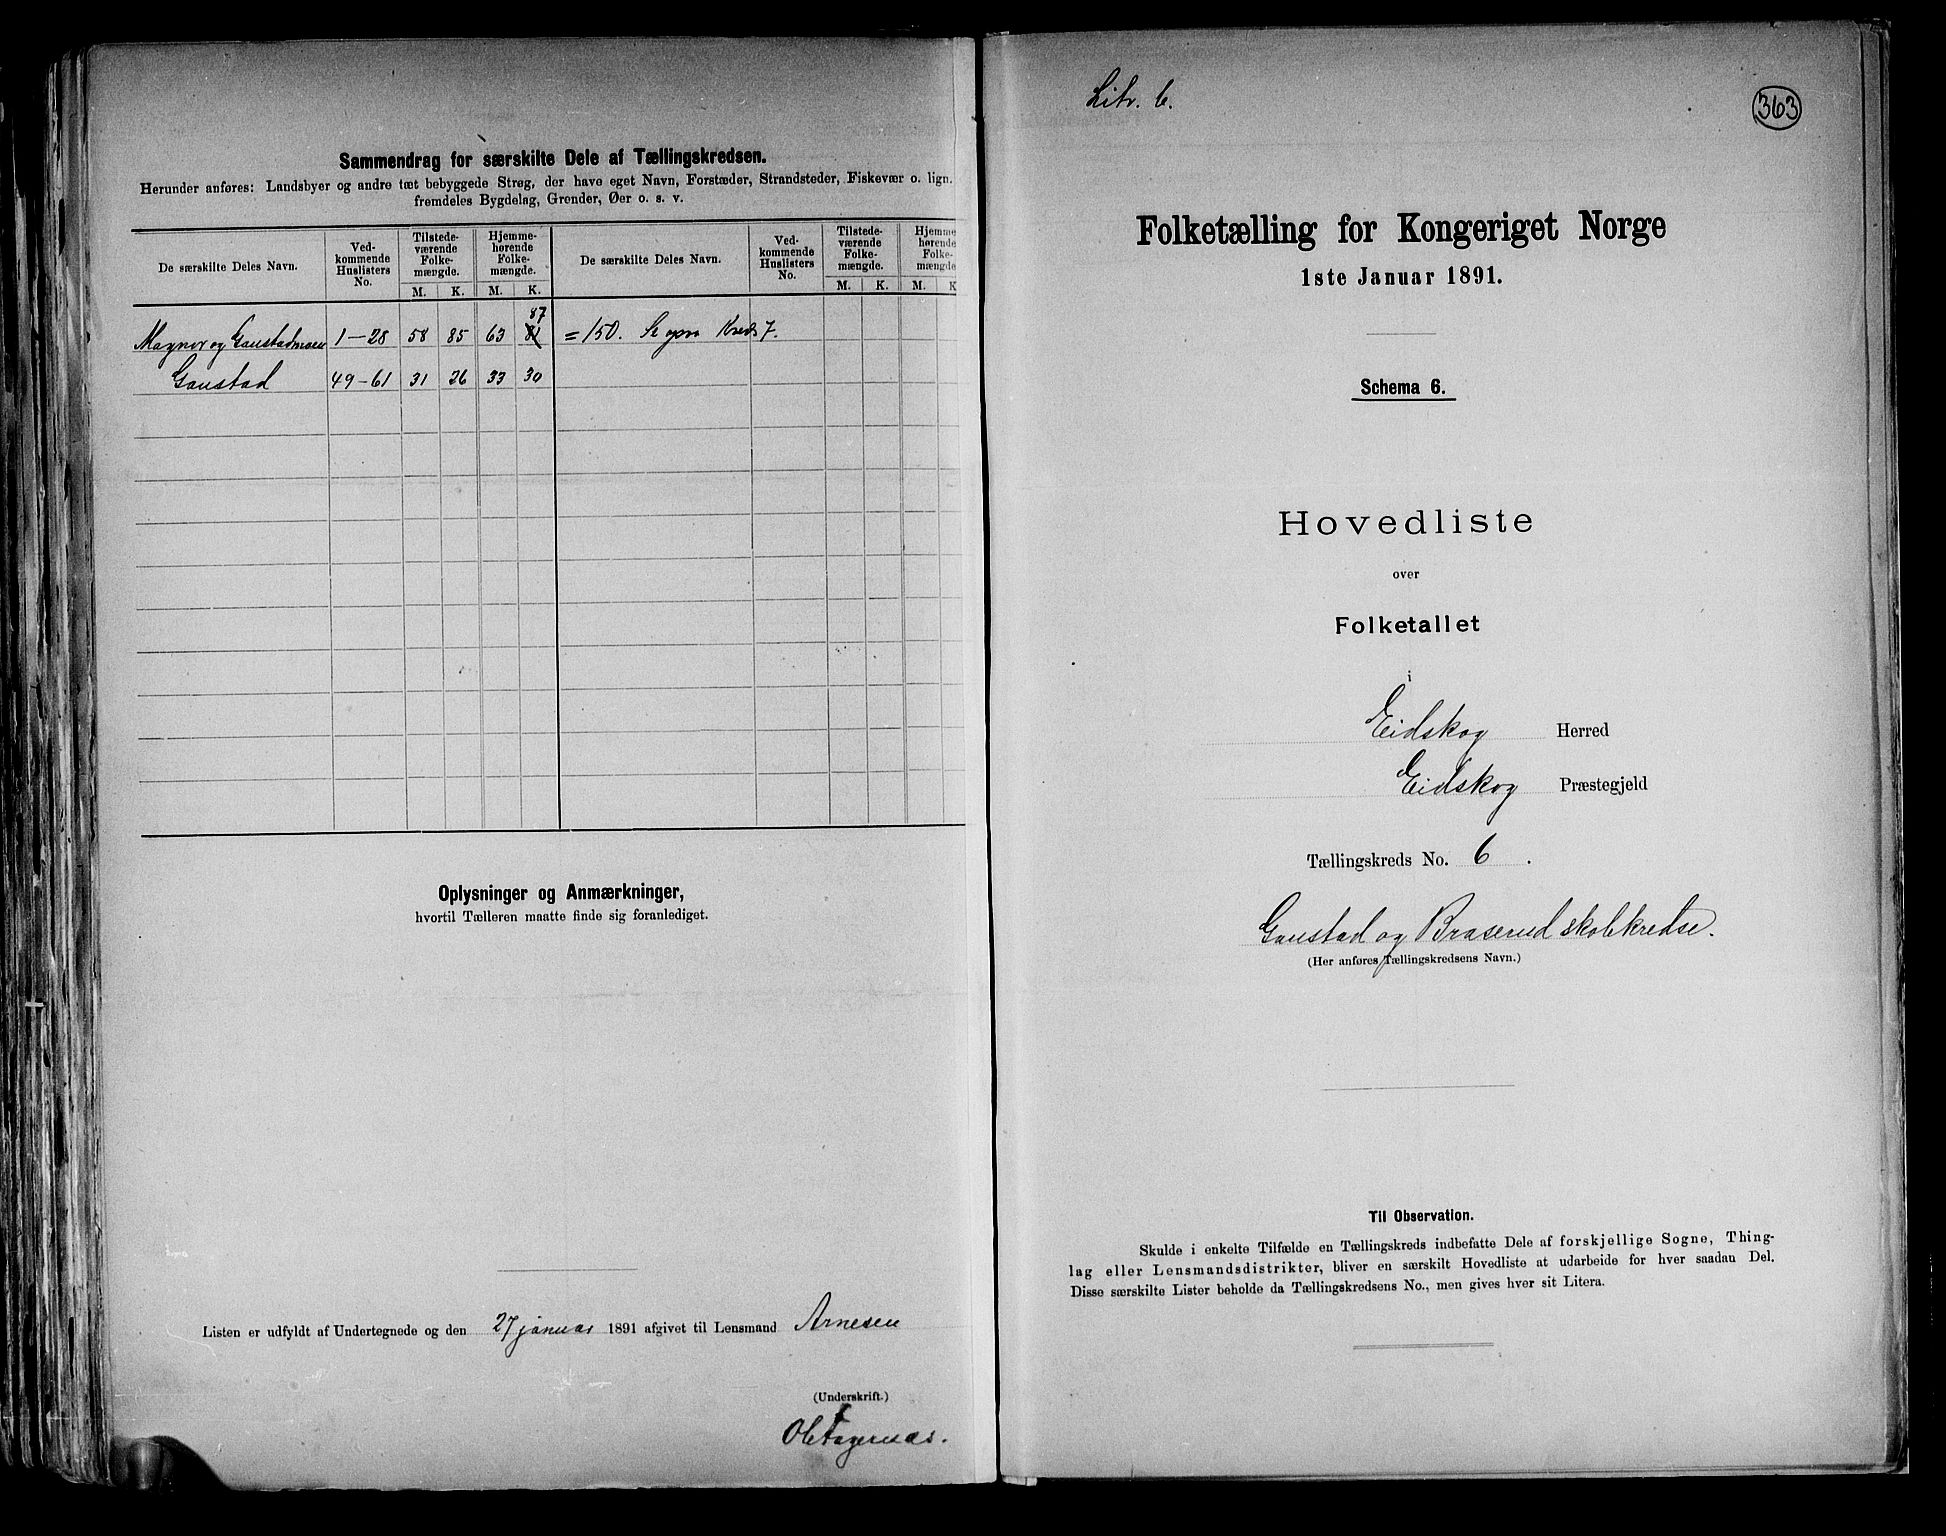 Sammendrag for særskilte Dele af Tællingskredsen.
Herunder anføres: Landsbyer og andre tæt bebyggede Strøg, der have eget Navn, Forstæder, Strandsteder, Fiskevær o. lign.
fremdeles Bygdelag, Grender, Øer o. s. v.
De særskilte Deles Navn.
Ved-
kommende
Huslisters
No.
Tilstede-
værende
Folke-
mængde.
Hjemme-
hørende
Folke-
mængde.
De særskilte Deles Navn.
Ved-
kommende
Huslisters
No.
Tilstede-
værende
Folke-
mængde.
Hjemme
hørende
Folke-
mængde
M. K. M. K. M. K. M. K
87
Magnor og Gaustadmoen 1-28 58 85 63 81 =150. Se ogsa Kreds 7.
Gaustad 49-61 31 26 33 30
Oplysninger og Anmærkninger,
hvortil Tælleren maatte finde sig foranlediget.
Listen er udfyldt af Undertegnede og den 27 januar 1891 afgivet til Lensmand Arnesen
(Underskrift.)
Litr. 6.
363
Folketælling for Kongeriget Norge
1ste Januar 1891.
Schema 6.
Hovedliste
over
Folketallet
i
Eidskog Herred
Eidskog Præstegjeld
Tællingskreds No. 6.
Gaustad og Braserud skolekredse.
(Her anføres Tællingskredsens Navn.)
Til Observation.
Skulde i enkelte Tilfælde en Tællingskreds indbefatte Dele af forskjellige Sogne, Thing-
lag eller Lensmandsdistrikter, bliver en særskilt Hovedliste at udarbeide for hver saadan Del.
Disse særskilte Lister beholde da Tællingskredsens No., men gives hver sit Litera.